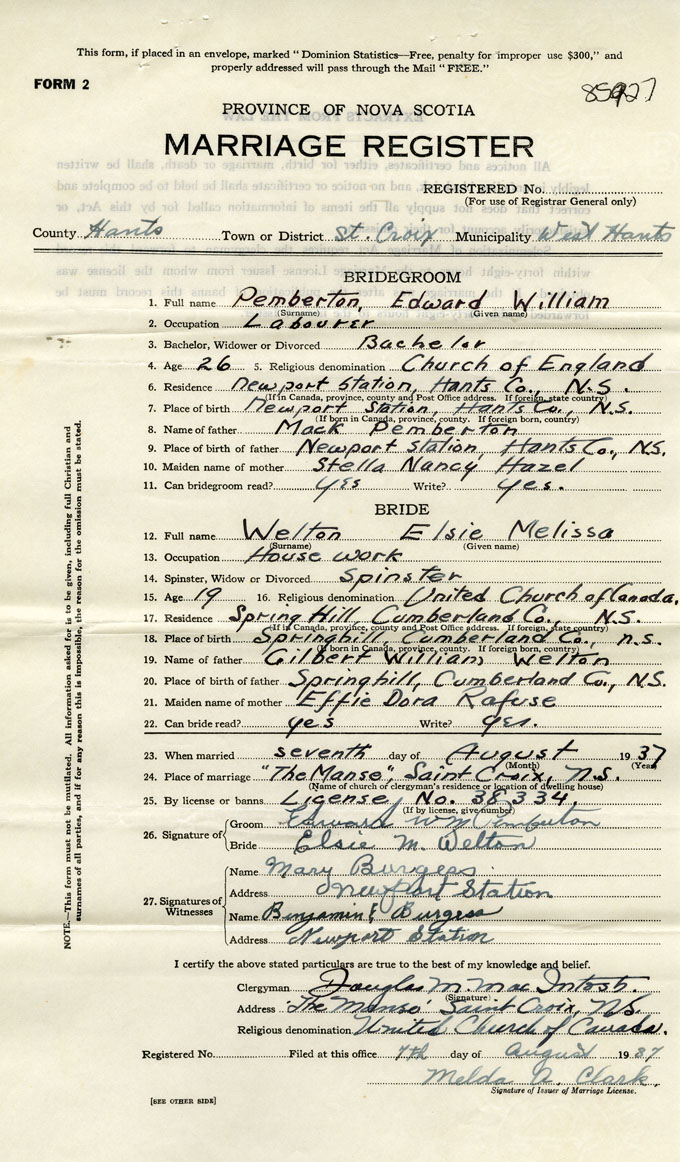 This form, if placed in an envelope, marked "Dominion Statistics—Free, penalty for improper use $300," and
properly addressed will pass through the Mail "FREE."
FORM 2
85927
PROVINCE OF NOVA SCOTIA
MARRIAGE REGISTER
REGISTERED No.
(For use of Registrar General only)
County Hants Town or District St. Croix Municipality West Hants
BRIDEGROOM
1. Full name Pemberton, Edward William
(Surname) (Given name)
2. Occupation Labourer
3. Bachelor, Widower or Divorced Bachelor
4. Age 26 5. Religious denomination Church of England
6. Residence Newport Station, Hants Co., N.S.
(If in Canada, province, county and Post Office address. If foreign, state country)
7. Place of birth Newport Station, Hants Co., N.S.
(If born in Canada, province, county. If foreign born, country)
8. Name of father Mack Pemberton
9. Place of birth of father Newport Station, Hants Co., N.S.
10. Maiden name of mother Stella Nancy Hazel
11. Can bridegroom read? yes Write? yes.
BRIDE
12. Full name Welton Elsie Melissa
(Surname) (Given name)
13. Occupation House work
14. Spinster, Widow or Divorced Spinster
15. Age 19 16. Religious denomination United Church of Canada.
17. Residence Spring Hill, Cumberland Co., N.S.
(If in Canada, province, county and Post Office address. If foreign, state country)
18. Place of birth Springhill, Cumberland Co., n.s.
(If born in Canada, province, county. If foreign born, country)
19. Name of father Gilbert William Welton
20. Place of birth of father Springhill, Cumberland Co., N.S.
21. Maiden name of mother Effie Dora Rafuse
22. Can bride read? yes Write? yes.
23. When married seventh day of August 1937
(Month) (Year)
24. Place of marriage "The Manse", Saint Croix, N.S.
(Name of church or clergyman's residence or location of dwelling house)
25. By license or banns License, No. 38,334,
(If by license, give number)
26. Signature of
Groom Edward Wm Pemberton
Bride Elsie M. Welton
27. Signatures of Witnesses
Name Mary Burgess
Address Newport Station
Name Benjamin F. Burgess
Address Newport Station
I certify the above stated particulars are true to the best of my knowledge and belief.
Clergyman Douglas M. Mac Intosh.
(Signature)
Address 'The Manse' Saint Croix, N.S.
Religious denomination United Church of Canada.
Registered No. Filed at this office 7th day of August 1937
Melda A. Clark,
Signature of Issuer of Marriage License.
[SEE OTHER SIDE]
NOTE.—This form must not be mutilated. All information asked for is to be given, including full Christian and
surnames of all parties, and if for any reason this is impossible, the reason for the omission must be stated.